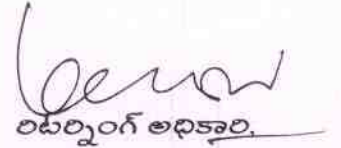 రిటర్నింగ్ అధికారి.